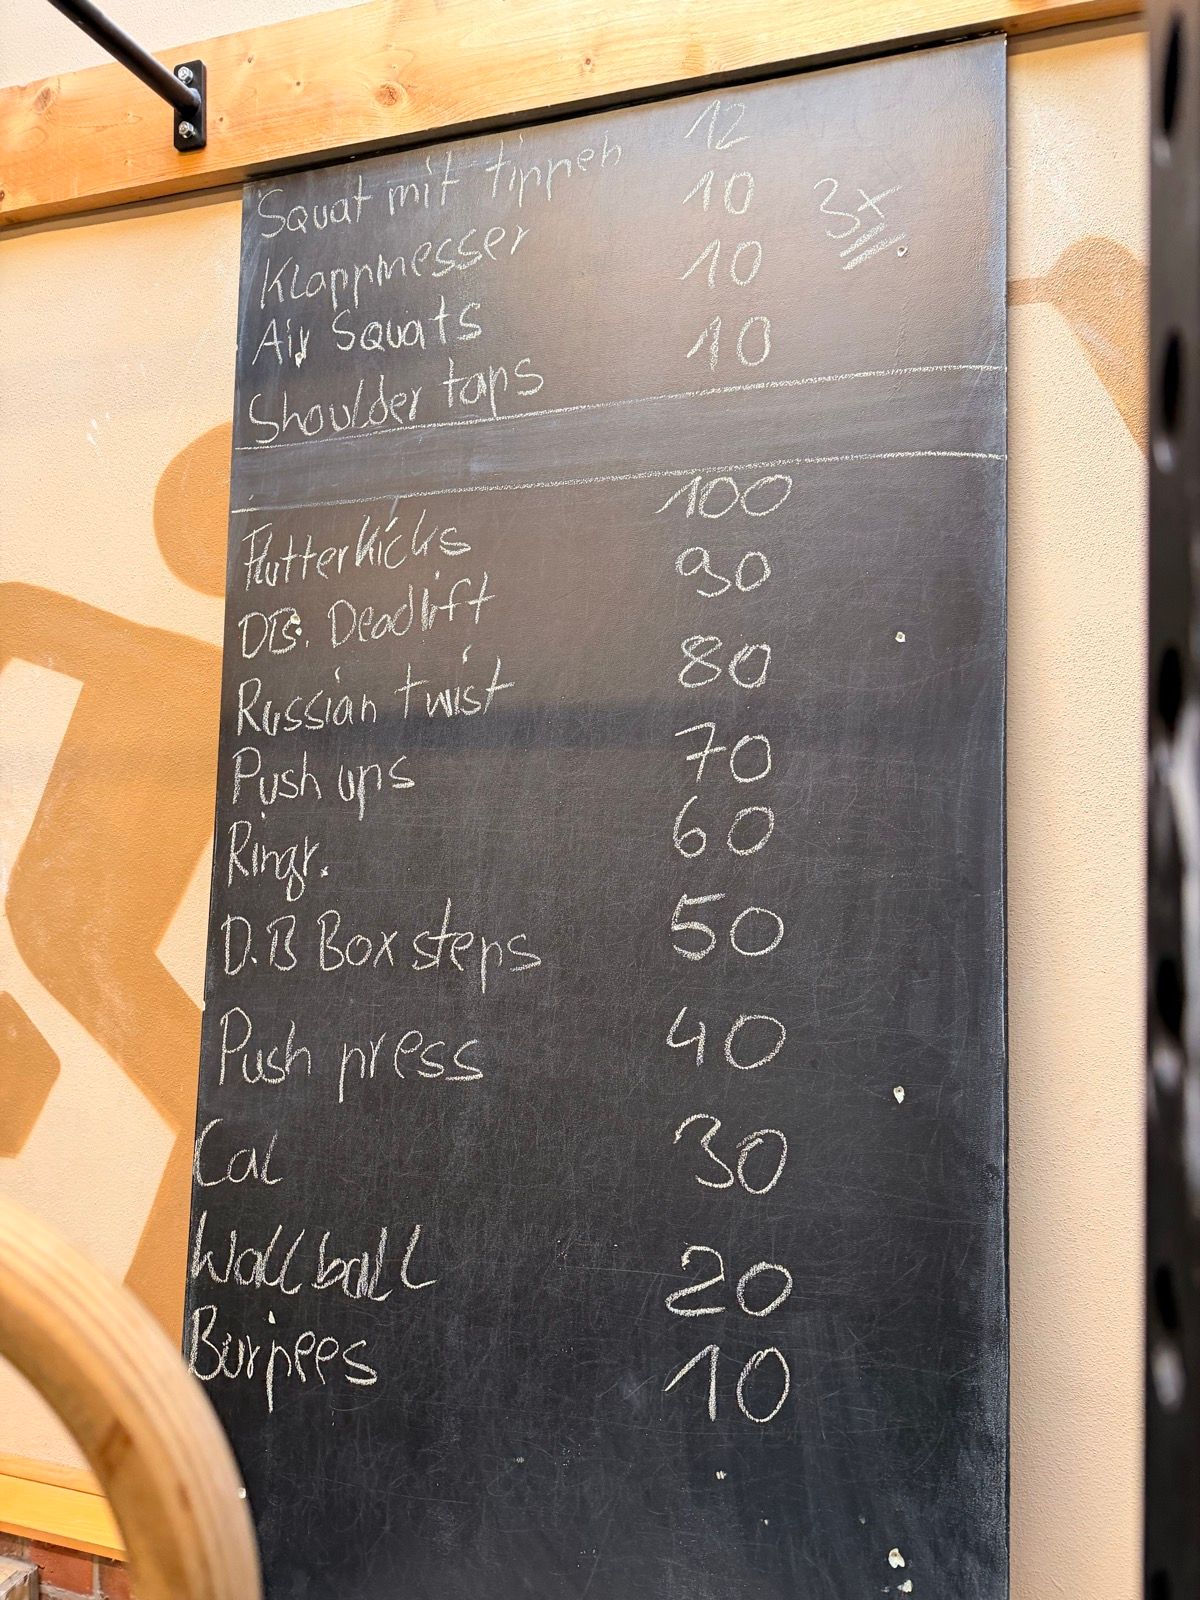 Squat mit tippen 12
Klappmesser 10 3x
Air Squats 10
Shoulder taps 10
Flutterkicks 100
DB. Deadlift 90
Russian twist 80
Push ups 70
Ringr. 60
D.B Box steps 50
Push press 40
Cal 30
Wallball 20
Burpees 10